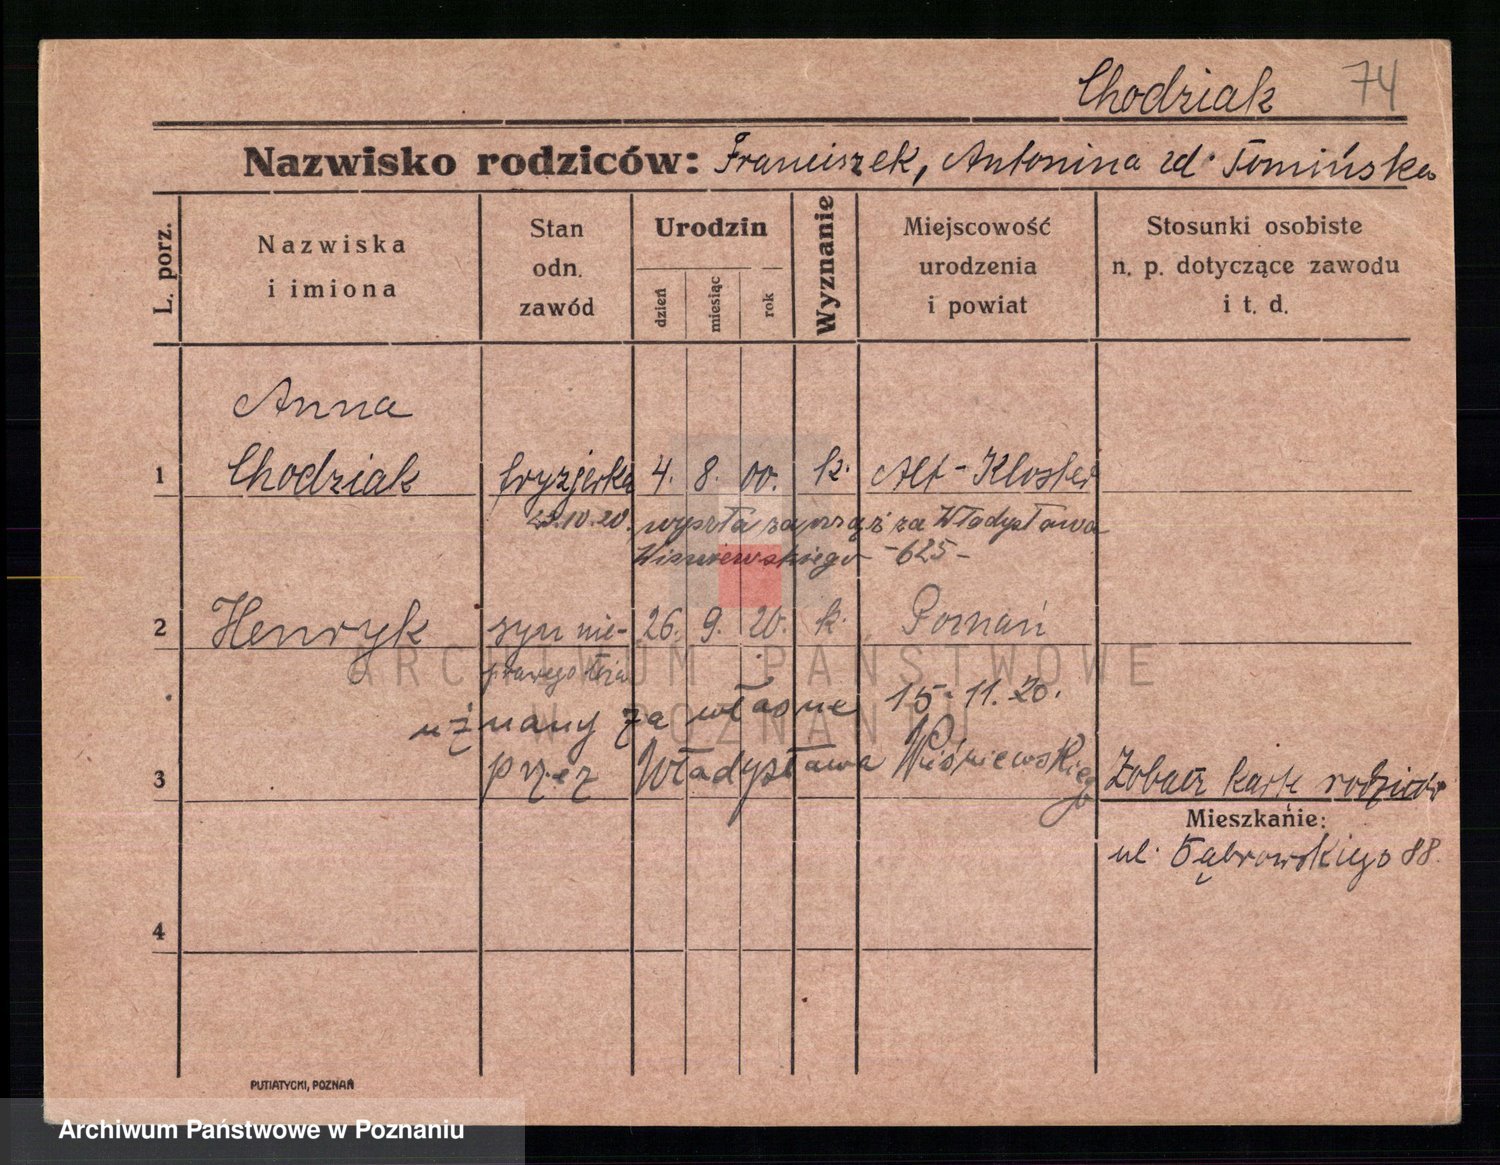 Chodziak 74
Nazwisko rodziców: Franciszek, Antonina zd. Tomińska
L. porz.
Nazwiska
i imiona
Stan
odn.
zawód
Urodzin
dzień
miesiąc
rok
Wyznanie
Miejscowość
urodzenia
i powiat
Stosunki osobiste
n. p. dotyczące zawodu
i t. d.
Anna
1 Chodziak fryzjerka 4. 8. 00. k. Alt-Kloster
23.10.20. wyszła zamąż za Władysława
Wiśniewskiego -625-
2 Henryk syn nie- 26. 9. 20. k. Poznań
uznany za własne 15.11.20.
przez Władysława Wiśniewskiego
3 Zobacz kartę rodziców
Mieszkanie:
ul. Dąbrowskiego 88.
4
PUTIATYCKI, POZNAŃ
ARCHIWUM PAŃSTWOWE
W POZNANIU
Archiwum Państwowe w Poznaniu